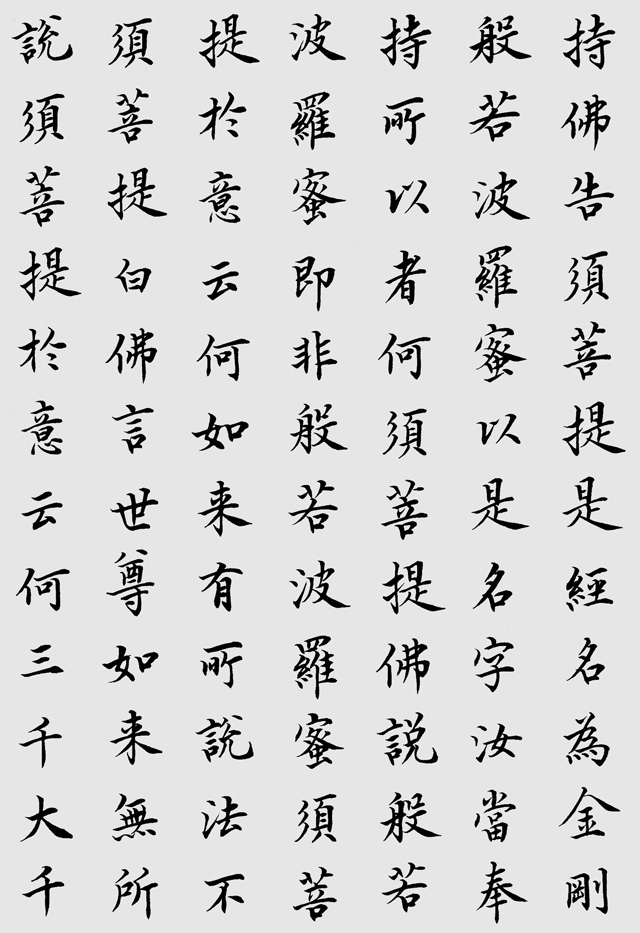 持佛告須菩提是經名為金剛
般若波羅蜜以是名字汝當奉
持所以者何須菩提佛説般若
波羅蜜即非般若波羅蜜須菩
提於意云何如来有所說法不
須菩提白佛言世尊如来無所
說須菩提於意云何三千大千